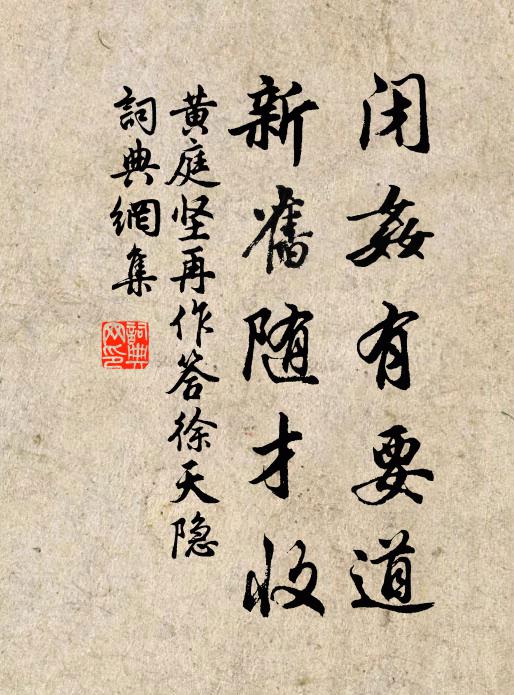 闭姦有要道
新舊随才收
黄庭坚再作答徐天隐
詞典網集
詞典网印